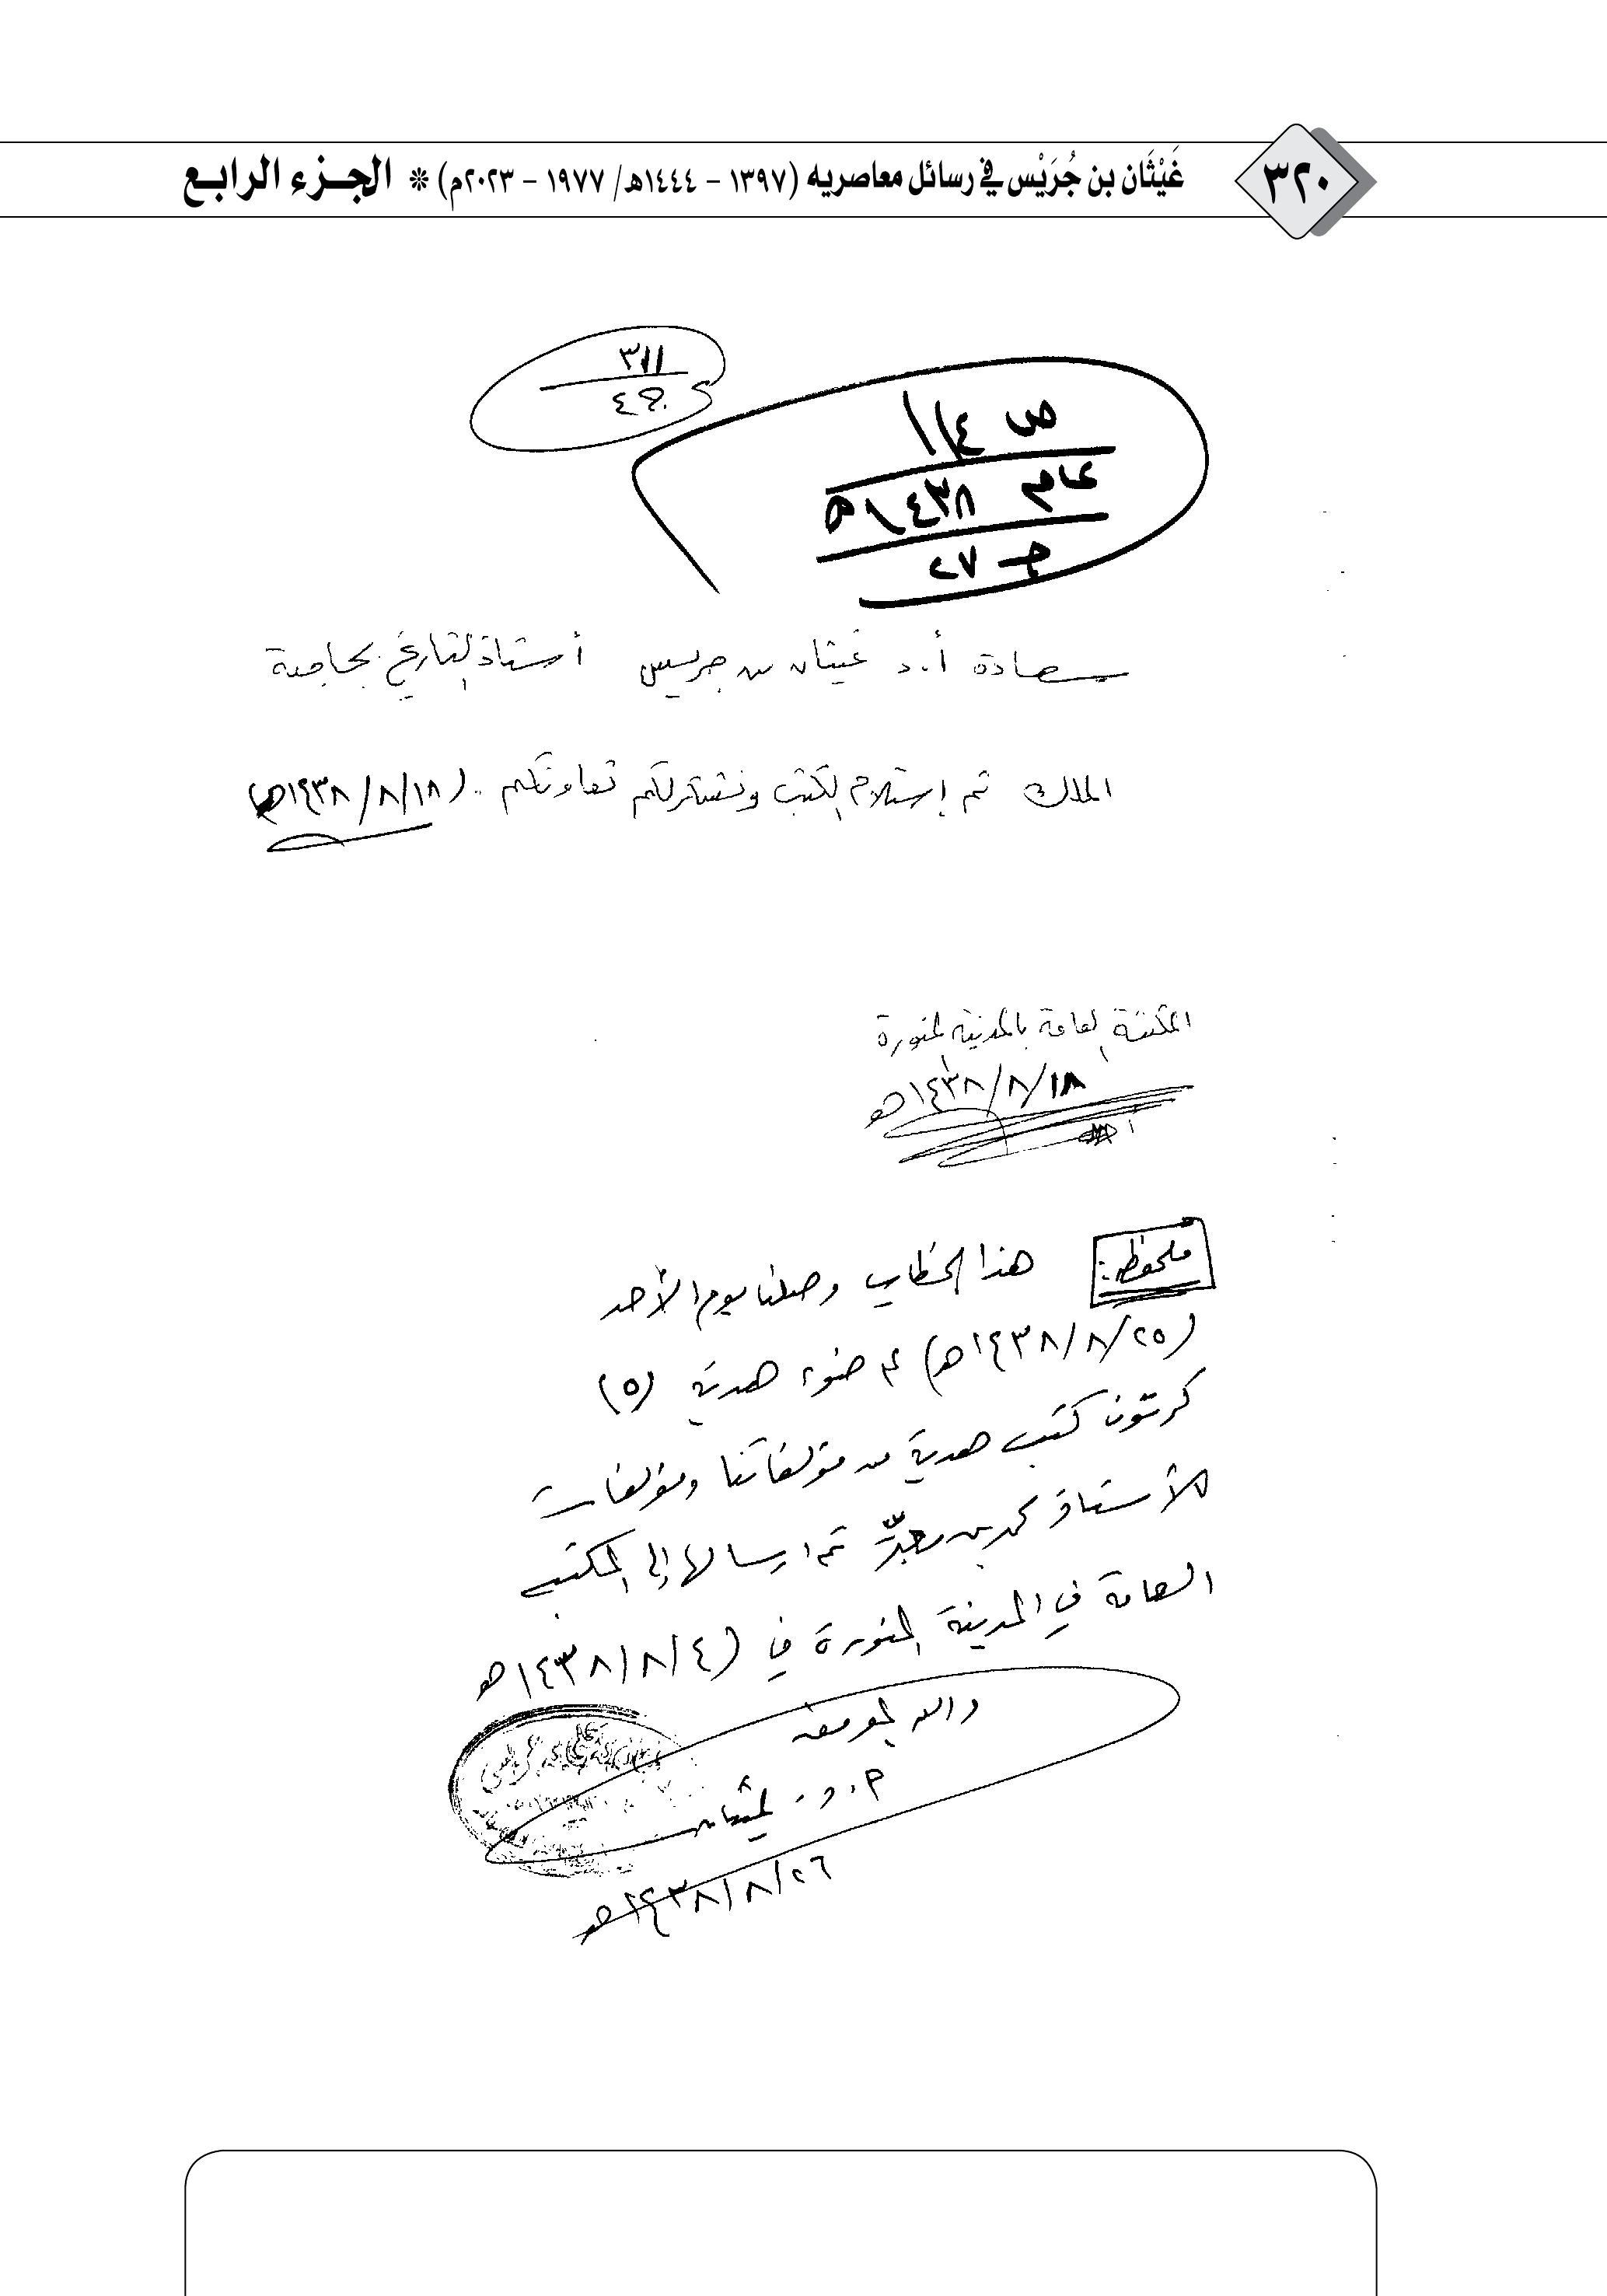 ٣٢٠
غَيْثَان بن جُرَيْس في رسائل معاصريه (١٣٩٧ - ١٤٤٤هـ/ ١٩٧٧ - ٢٠٢٣م) * الجزء الرابع
٣١١
ج ٤
ص ١١٤
عام ١٤٣٨هـ
جـ ٢٧
سعادة أ.د غيثان بن جريس أستاذ التاريخ بجامعة
الملك تم إستلام الكتب ونشكر لكم تعاونكم .. (١٤٣٨/٨/١٨هـ)
المكتبة العامة بالمدينة المنورة
١٤٣٨/٨/١٨هـ
ملحوظة: هذا الخطاب وصلنا يوم الأحد
(١٤٣٨/٨/٢٥هـ) على ضوء هدية (٥)
كرتون كتب هدية من مؤلفاتنا ومؤلفات
الأستاذ محمد بن تم ارسالها إلى المكتبة
العامة في المدينة المنورة في (١٤٣٨/٨/٤هـ
والله الموفق
أ.د. غيثان
١٤٣٨/٨/٢٦هـ